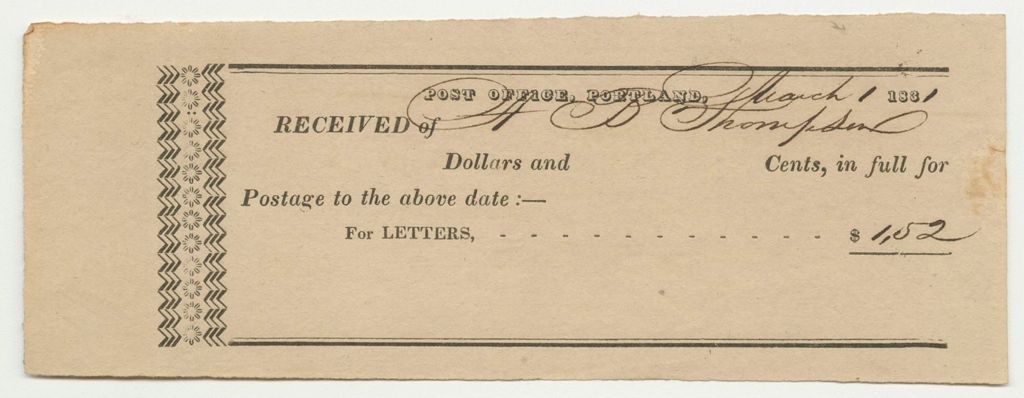 POST OFFICE, PORTLAND, March 1 1831
RECEIVED of H D Thompson
Dollars and Cents, in full for
Postage to the above date :—
For LETTERS, - - - - - - - - - - - - - $ 1,52